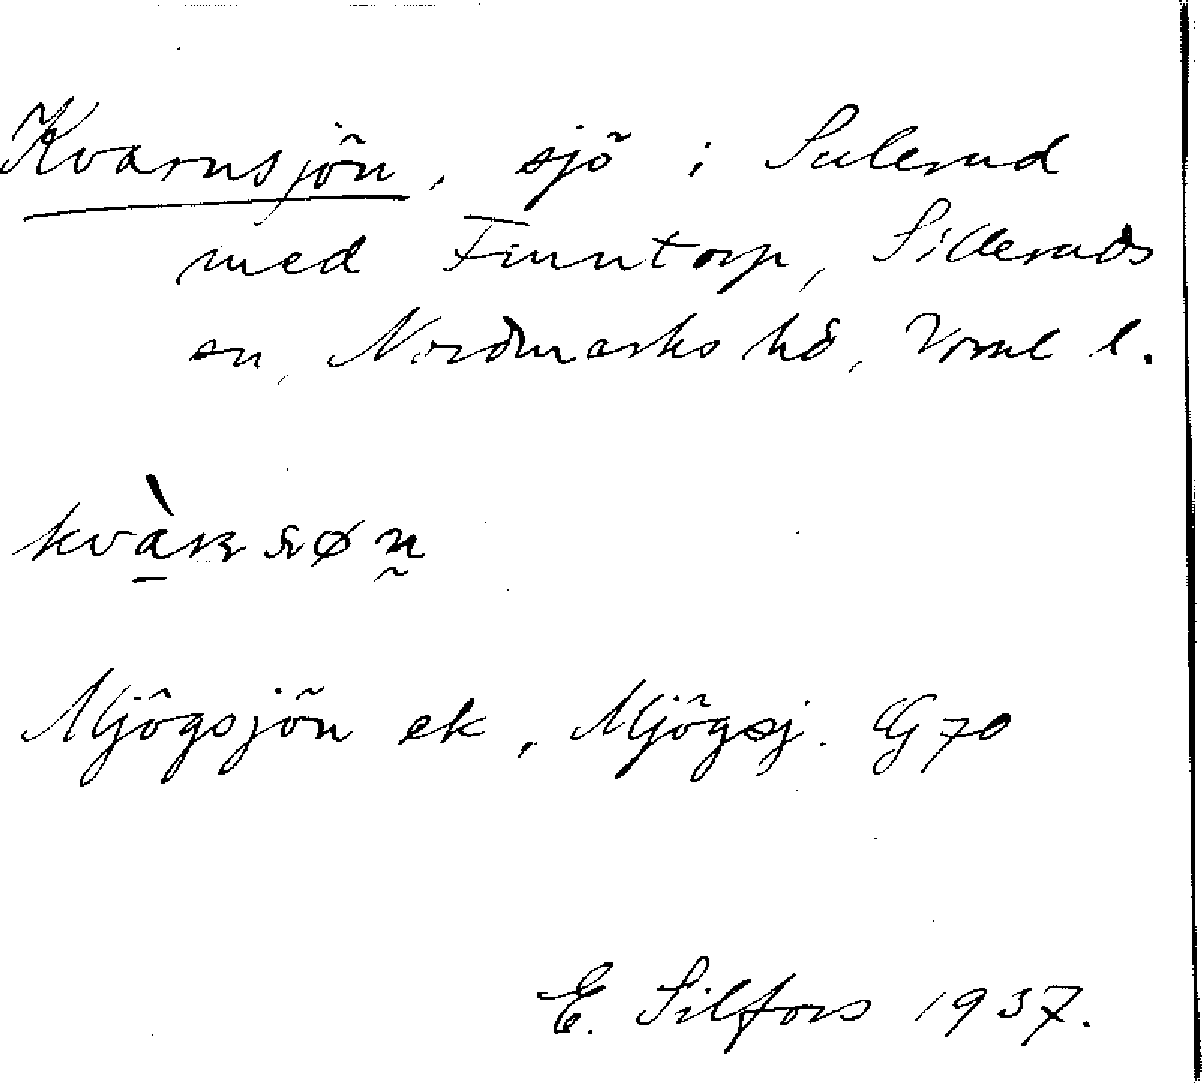 Kvarnsjön, sjö i Sulerud
med Finntorp, Silleruds
sn, Nordmarks hd, Vrml l.
Mjögsjön ek, Mjögsj. G 70
E. Silfors 1937.